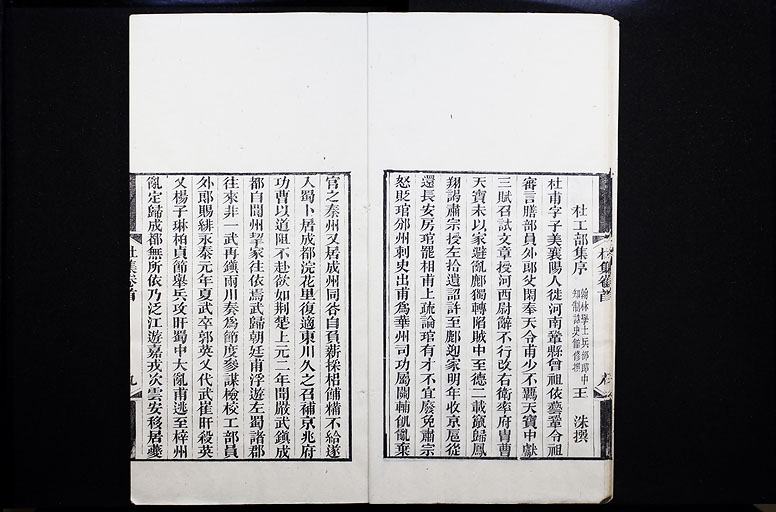 杜集卷首
杜工部集序
翰林學士兵部郎中
知制誥史館修撰
王　洙撰
杜甫字子美襄陽人徙河南鞏縣曾祖依藝鞏令祖
審言膳部員外郎父閑奉天令甫少不羈天寶中獻
三賦召試文章授河西尉辭不行改右衛率府胄曹
天寶末以家避亂鄜獨轉陷賊中至德二載竄歸鳳
翔謁肅宗授左拾遺詔許至鄜迎家明年收京扈從
還長安房琯罷相甫上疏論琯有才不宜廢免肅宗
怒貶琯邠州刺史出甫為華州司功屬關輔飢亂棄
官之秦州又居成州同谷自負薪採梠餔糒不給遂
入蜀卜居成都浣花里復適東川久之召補京兆府
功曹以道阻不赴欲如荆楚上元二年聞嚴武鎮成
都自閬州挈家往依焉武歸朝廷甫浮遊左蜀諸郡
往來非一武再鎮兩川奏為節度參謀檢校工部員
外郎賜緋永泰元年夏武卒郭英乂代武崔旰殺英
乂楊子琳柏貞節舉兵攻旰蜀中大亂甫逃至梓州
亂定歸成都無所依乃泛江遊嘉戎次雲安移居夔
杜集卷首
九